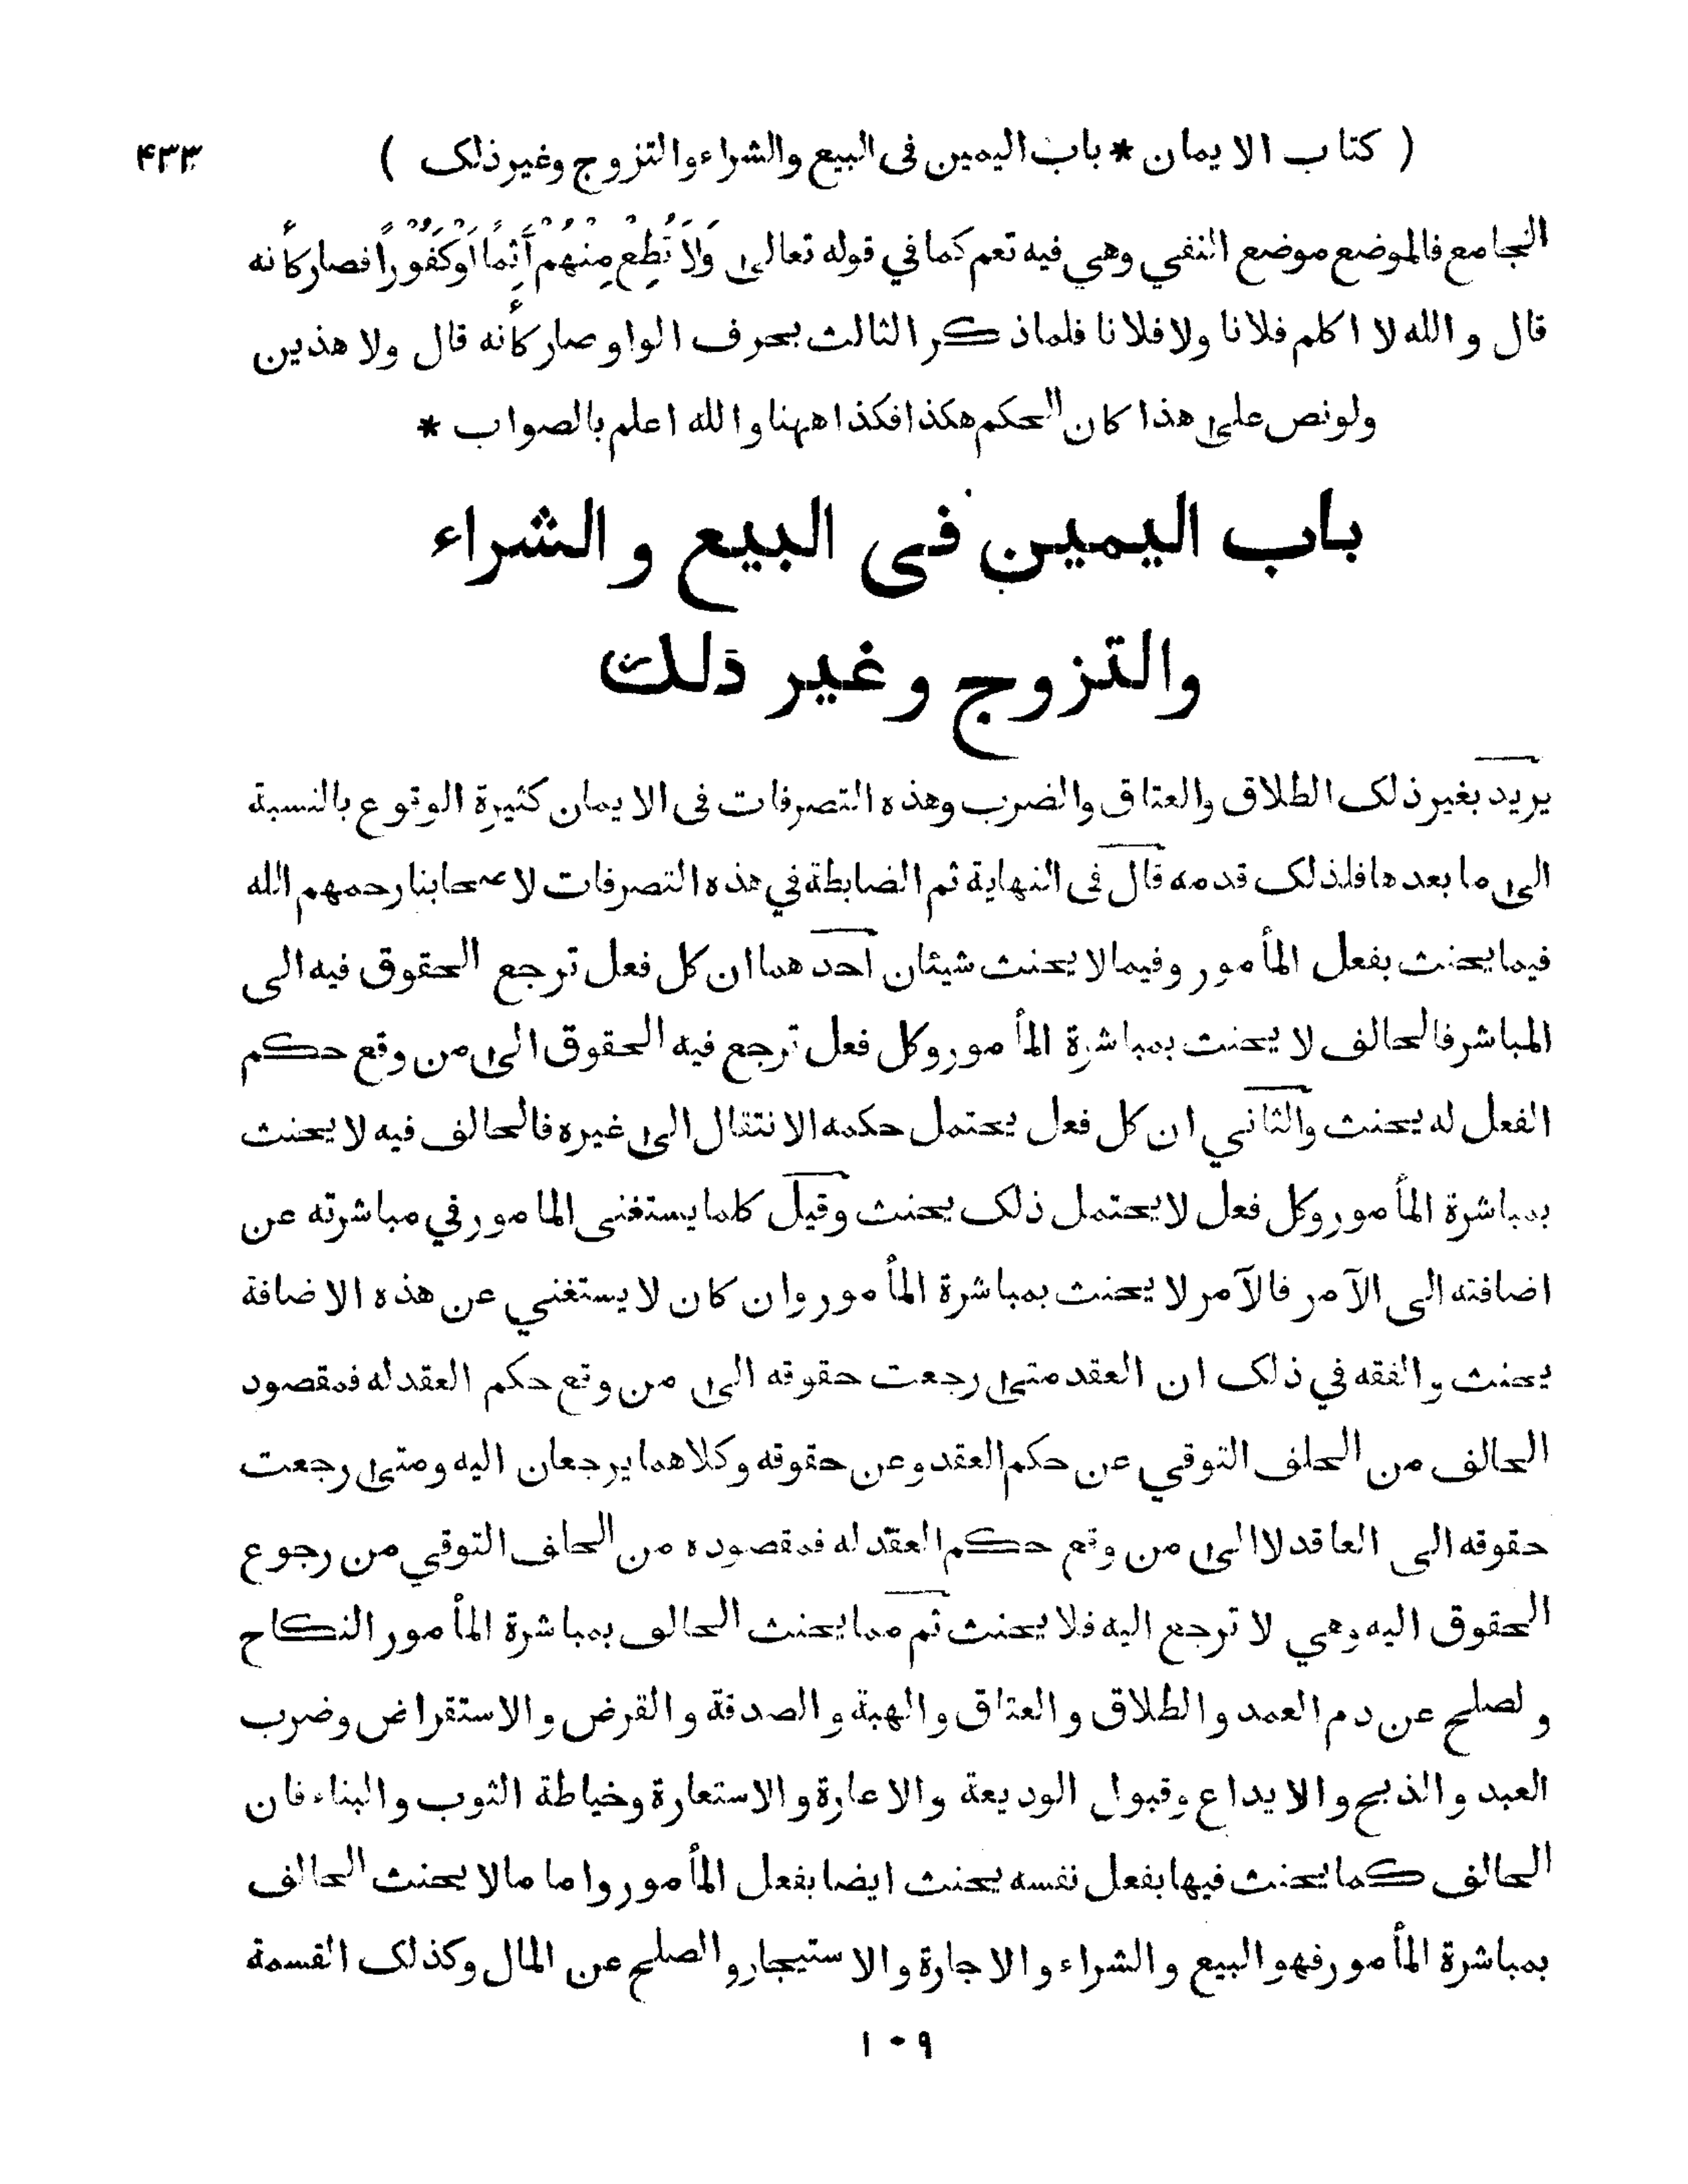 ( كتاب الايمان * باب اليمين فى البيع والشراء والتزوج وغير ذلك ) ۴۳۳
الجامع فالموضع موضع النفي وهي فيه تعم كما في قوله تعالى وَلاَ تُطِعْ مِنْهُمْ أَثِمًا اَوْكَفُوْرًا فصار كأنه
قال والله لا اكلم فلانا ولا فلانا فلما ذكر الثالث بحرف الواو صار كأنه قال ولا هذين
ولو نص على هذا كان الحكم هكذا فكذا ههنا والله اعلم بالصواب *
باب اليمين فى البيع و الشراء
والتزوج وغير ذلك
يريد بغير ذلك الطلاق والعتاق والضرب وهذه التصرفات فى الايمان كثيرة الوقوع بالنسبة
الى ما بعدها فلذلك قدمه قال فى النهاية ثم الضابطة في هذه التصرفات لاصحابنا رحمهم الله
فيما يحنث بفعل المأمور وفيما لا يحنث شيئان احدهما ان كل فعل ترجع الحقوق فيه الى
المباشر فالحالف لا يحنث بمباشرة المأمور وكل فعل ترجع فيه الحقوق الى من وقع حكم
الفعل له يحنث والثاني ان كل فعل يحتمل حكمه الانتقال الى غيره فالحالف فيه لا يحنث
بمباشرة المأمور وكل فعل لا يحتمل ذلك يحنث وقيل كلما يستغنى المامور في مباشرته عن
اضافته الى الآمر فالآمر لا يحنث بمباشرة المأمور وان كان لا يستغني عن هذه الاضافة
يحنث والفقه في ذلك ان العقد متى رجعت حقوقه الى من وقع حكم العقد له فمقصود
الحالف من الحلف التوقي عن حكم العقد وعن حقوقه وكلاهما يرجعان اليه ومتى رجعت
حقوقه الى العاقد لا الى من وقع حكم العقد له فمقصوده من الحلف التوقي من رجوع
الحقوق اليه وهي لا ترجع اليه فلا يحنث ثم مما يحنث الحالف بمباشرة المأمور النكاح
و لصلح عن دم العمد والطلاق والعتاق والهبة والصدقة والقرض والاستقراض وضرب
العبد والذبح والايداع وقبول الوديعة والاعارة والاستعارة وخياطة الثوب والبناء فان
الحالف كما يحنث فيها بفعل نفسه يحنث ايضا بفعل المأمور واما مالا يحنث الحالف
بمباشرة المأمور فهو البيع والشراء والاجارة والاستيجار والصلح عن المال وكذلك القسمة
١٠٩